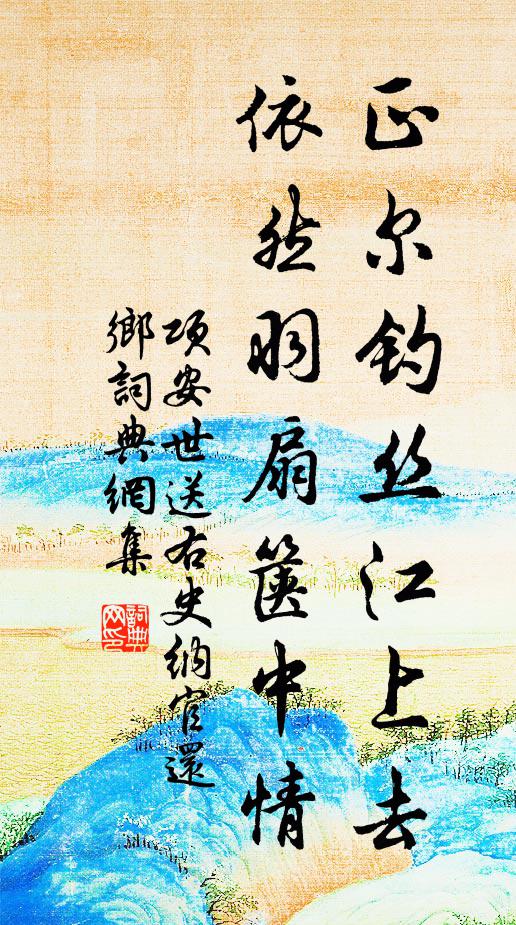 正尔钓丝江上去
依然羽扇箧中情
项安世送右史纳官還
鄉詞典網集
詞典
网印